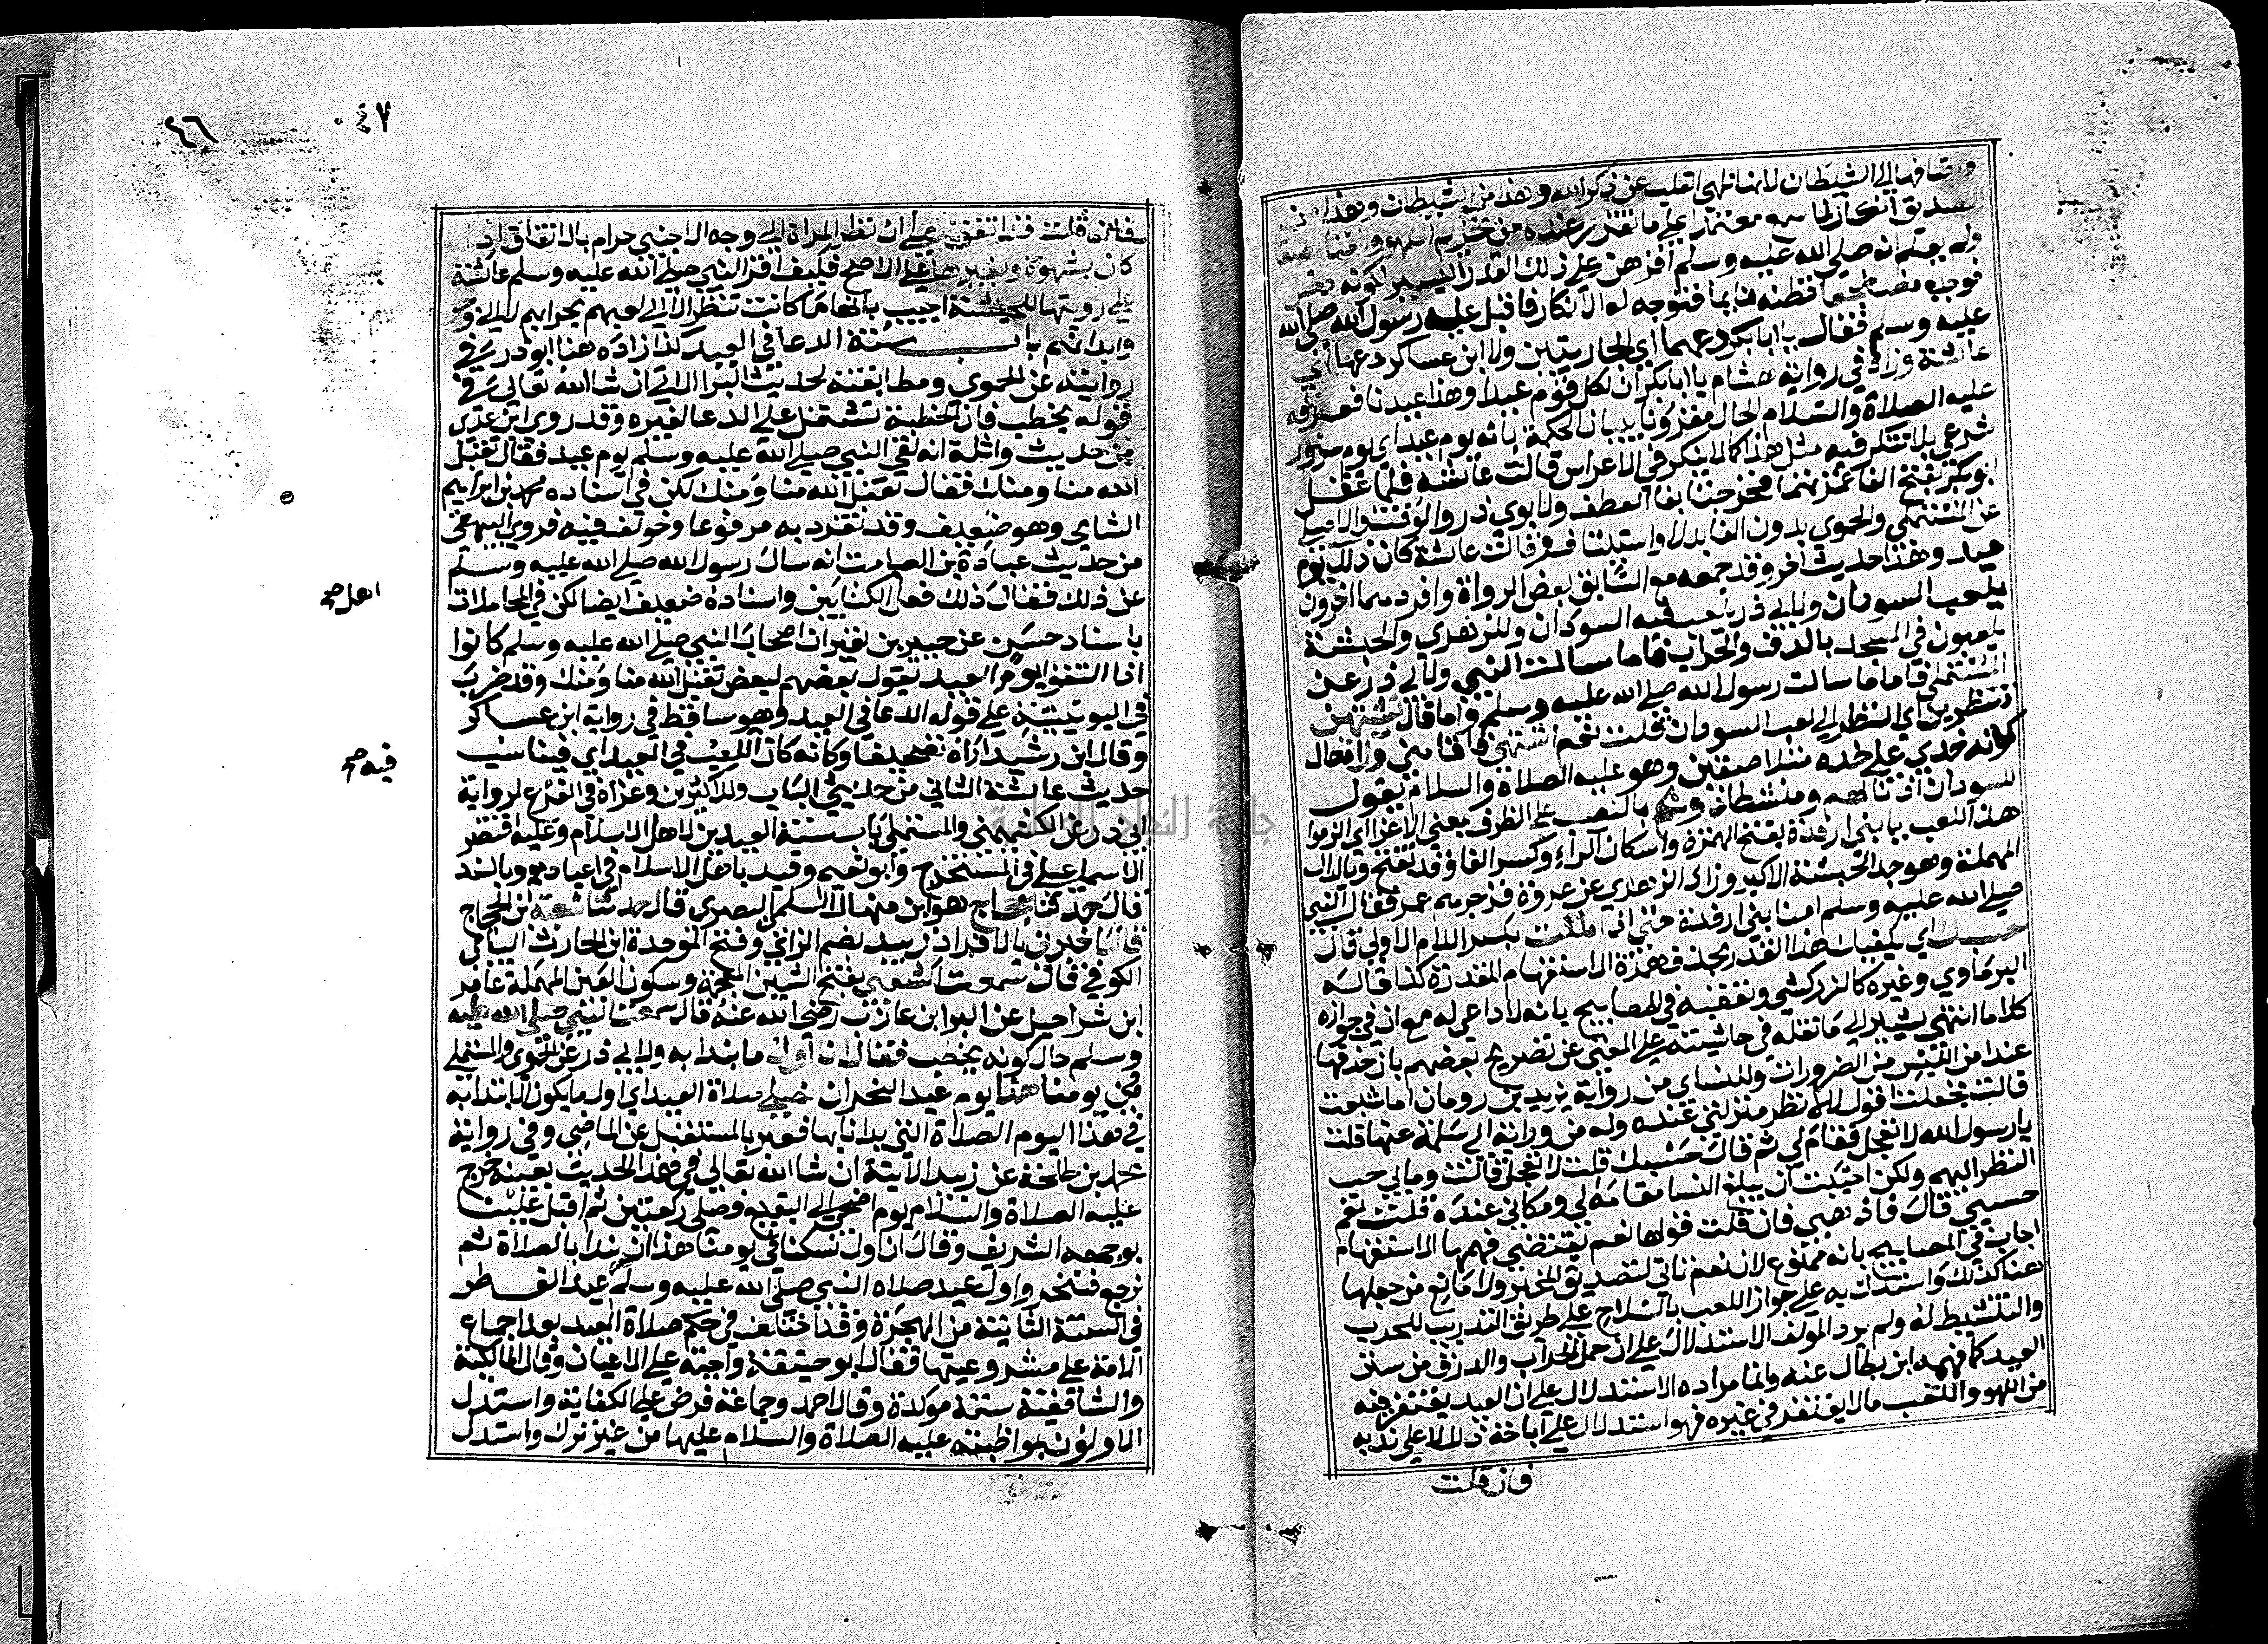 واضافها الى الشيطان لانها تلهي القلب عن ذكر الله وهذا من الشيطان وهذا من
الصديق انكار لما سمع معتمدا على ما تقرر عنده من تحريم اللهو والغنا مطلقا
ولم يعلم انه صلى الله عليه وسلم اقرهن على ذلك القدر اليسير لكونه دخل
فوجده مضطجعا فظنه نائما فتوجه له الانكار فاقبل عليه رسول الله صلى الله
عليه وسلم فقال يا ابا بكر دعهما اي الجاريتين ولابن عساكر دعها اي
عائشة وزاد في رواية هشام يا ابا بكر ان لكل قوم عيدا وهذا عيدنا فعرفه
عليه الصلاة والسلام الحال مقرونا ببيان الحكمة بانه يوم عيد اي يوم سرور
شرعي فلا ينكر فيه مثل هذا كما لا ينكر في الاعراس قالت عائشة فلما غفل
ابو بكر بفتح الفا غمزتهما فخرجتا بفا العطف ولابوي ذر والوقت والاصيلي
عن المستملي والحموي بدون الفا بدل او استينا ف قالت عائشة كان ذلك يوم
عيد وهذا حديث اخر وقد جمعه مع السابق بعض الرواة وافردهما اخرون
يلعب السودان ولابي ذر يلعب فيه السودان وللزهري والحبشة
يلعبون في المسجد بالدرق والحراب فاما سالت النبي ولابي ذر عن
المستملي فاما سالت رسول الله صلى الله عليه وسلم واما قال تشتهين
تنظرين اي النظر الى لعب السودان فقلت نعم اشتهي فاقامني وراه حال
كونه خدي على خده متلاصقين وهو عليه الصلاة والسلام يقول
للسودان اذنا لهم ومنشطا دونكم بالنصب على الظرف بمعنى الاغرا اي الزموا
هذا اللعب يا بني ارفدة بفتح الهمزة واسكان الراء وكسر الفا وقد تفتح وبالدال
المهملة وهو جد الحبشة الاكبر وزاد الزهري عن عروة فزجرهم عمر فقال النبي
صلى الله عليه وسلم امنا بني ارفدة حتى اذا مللت بكسر اللام الاولى قال
حسبك اي يكفيك هذا القدر بحذف همزة الاستفهام المقدرة كذا قاله
البرماوي وغيره كالزركشي وتعقبه في المصابيح بانه لا داعي له مع ان في جوازه
كلاما انتهى يشير الى ما نقله في حاشيته على المغني عن تصريح بعضهم بان حذفها
عند امن اللبس من الضرورات وللنساي من رواية يزيد بن رومان اما شبعت
قالت فجعلت اقول لا لا نظر منزلتي عنده وله من رواية ابي سلمة عنها قلت
يا رسول الله لا تعجل فقام لي ثم قال حسبك قلت لا تعجل قالت وما بي حب
النظر اليهم ولكن احببت ان يبلغ النسا مقامه لي ومكاني عنده قلت نعم
حسبي قال فاذهبي فان قلت قولها نعم يقتضي فهمها الاستفهام
اجاب في المصابيح بانه ممنوع لان نعم تاتي لتصديق المخبر ولا مانع من جعلها
هنا كذلك واستدل به على جواز اللعب بالسلاح على طريق التدريب للحرب
والتنشيط له ولم يرد المولف الاستدلال على ان حمل الحراب والدرق من سنن
العيد كما فهمه ابن بطال عنه وانما مراده الاستدلال على ان العيد يغتفر فيه
من اللهو واللعب ما لا يغتفر في غيره فهو استدلال على اباحة ذلك لا على ندبه
فان قلت
٤٧
٤٦
فان قلت قد اتفق على ان نظر المراة الى وجه الاجنبي حرام بالاتفاق اذا
كان بشهوة وبغيرها على الاصح فكيف اقر النبي صلى الله عليه وسلم عائشة
على رويتها للحبشة اجيب بانها ما كانت تنظر الا الى لعبهم بحرابهم لا الى
وابدانهم باب سنة الدعا في العيد كذا زاده هنا ابو ذر في
روايته عن الحموي ومطابقته لحديث البرا الاتي ان شا الله تعالى في
قوله يخطب فان الخطبة تشتمل على الدعا لغيره وقد روى ابن عدي
من حديث واثلة انه لقي النبي صلى الله عليه وسلم يوم عيد فقال تقبل
الله منا ومنك فقال نعم تقبل الله منا ومنك لكن في اسناده محمد بن ابراهيم
الشامي وهو ضعيف وقد تفرد به مرفوعا وخولف فيه فروى البيهقي
من حديث عبادة بن الصامت انه سال رسول الله صلى الله عليه وسلم
عن ذلك فقال ذلك فعل الكتابين واسناده ضعيف ايضا لكن في المحامليات
اهل صح
باسناد حسن عن جبير بن نفير ان اصحاب النبي صلى الله عليه وسلم كانوا
اذا التقوا يوم العيد يقول بعضهم لبعض تقبل الله منا ومنك وقد ضرب
في اليونينية على قوله الدعا في العيد وهو ساقط في رواية ابن عساكر
وقال ابن رشيد اراه تصحيفا وكانه كان اللعب في العيد اي فيناسب
فيه صح
حديث عائشة الثاني من حديثي الباب وللاكثرين وعزاه في الفرع لرواية
ابي ذر عن الكشميهني والمستملي باب سنة العيدين لاهل الاسلام وعليه اقتصر
الاسماعيلي في المستخرج وابو نعيم وقيد باهل الاسلام في اعيادهم وبالسند
قال حدثنا حجاج هو ابن منهال السلمي البصري قال حدثنا شعبة ابن الحجاج
قال اخبرني بالافراد زبيد بضم الزاي وفتح الموحدة ابن الحارث اليامي
الكوفي قال سمعت الشعبي بفتح الشين المعجمة وسكون العين المهملة عامر
ابن شراحيل عن البرا بن عازب رضي الله عنه قال سمعت النبي صلى الله عليه
وسلم حال كونه يخطب فقال ان اول ما نبدا به ولابي ذر عن الحموي والمستملي
في يومنا هذا يوم عيد النحر ان نصلي صلاة العيد اي اول ما يكون الابتدا به
في هذا اليوم الصلاة التي بدانا بها فعبر بالمستقبل عن الماضي وفي رواية
محمد بن طلحة عن زبيد الاتية ان شا الله تعالى في هذا الحديث بعينه خرج
عليه الصلاة والسلام يوم اضحى الى البقيع فصلى ركعتين ثم اقبل علينا
بوجهه الشريف وقال ان اول نسكنا في يومنا هذا ان نبدا بالصلاة ثم
نرجع فننحر واول عيد صلاه النبي صلى الله عليه وسلم عيد الفطر
في السنة الثانية من الهجرة وقد اختلف في حكم صلاة العيد بعد اجماع
الامة على مشروعيتها فقال ابو حنيفة واجبة على الاعيان وقال المالكية
والشافعية سنة موكدة وقال احمد وجماعة فرض على الكفاية واستدل
الاولون بمواظبته عليه الصلاة والسلام عليها من غير ترك واستدل